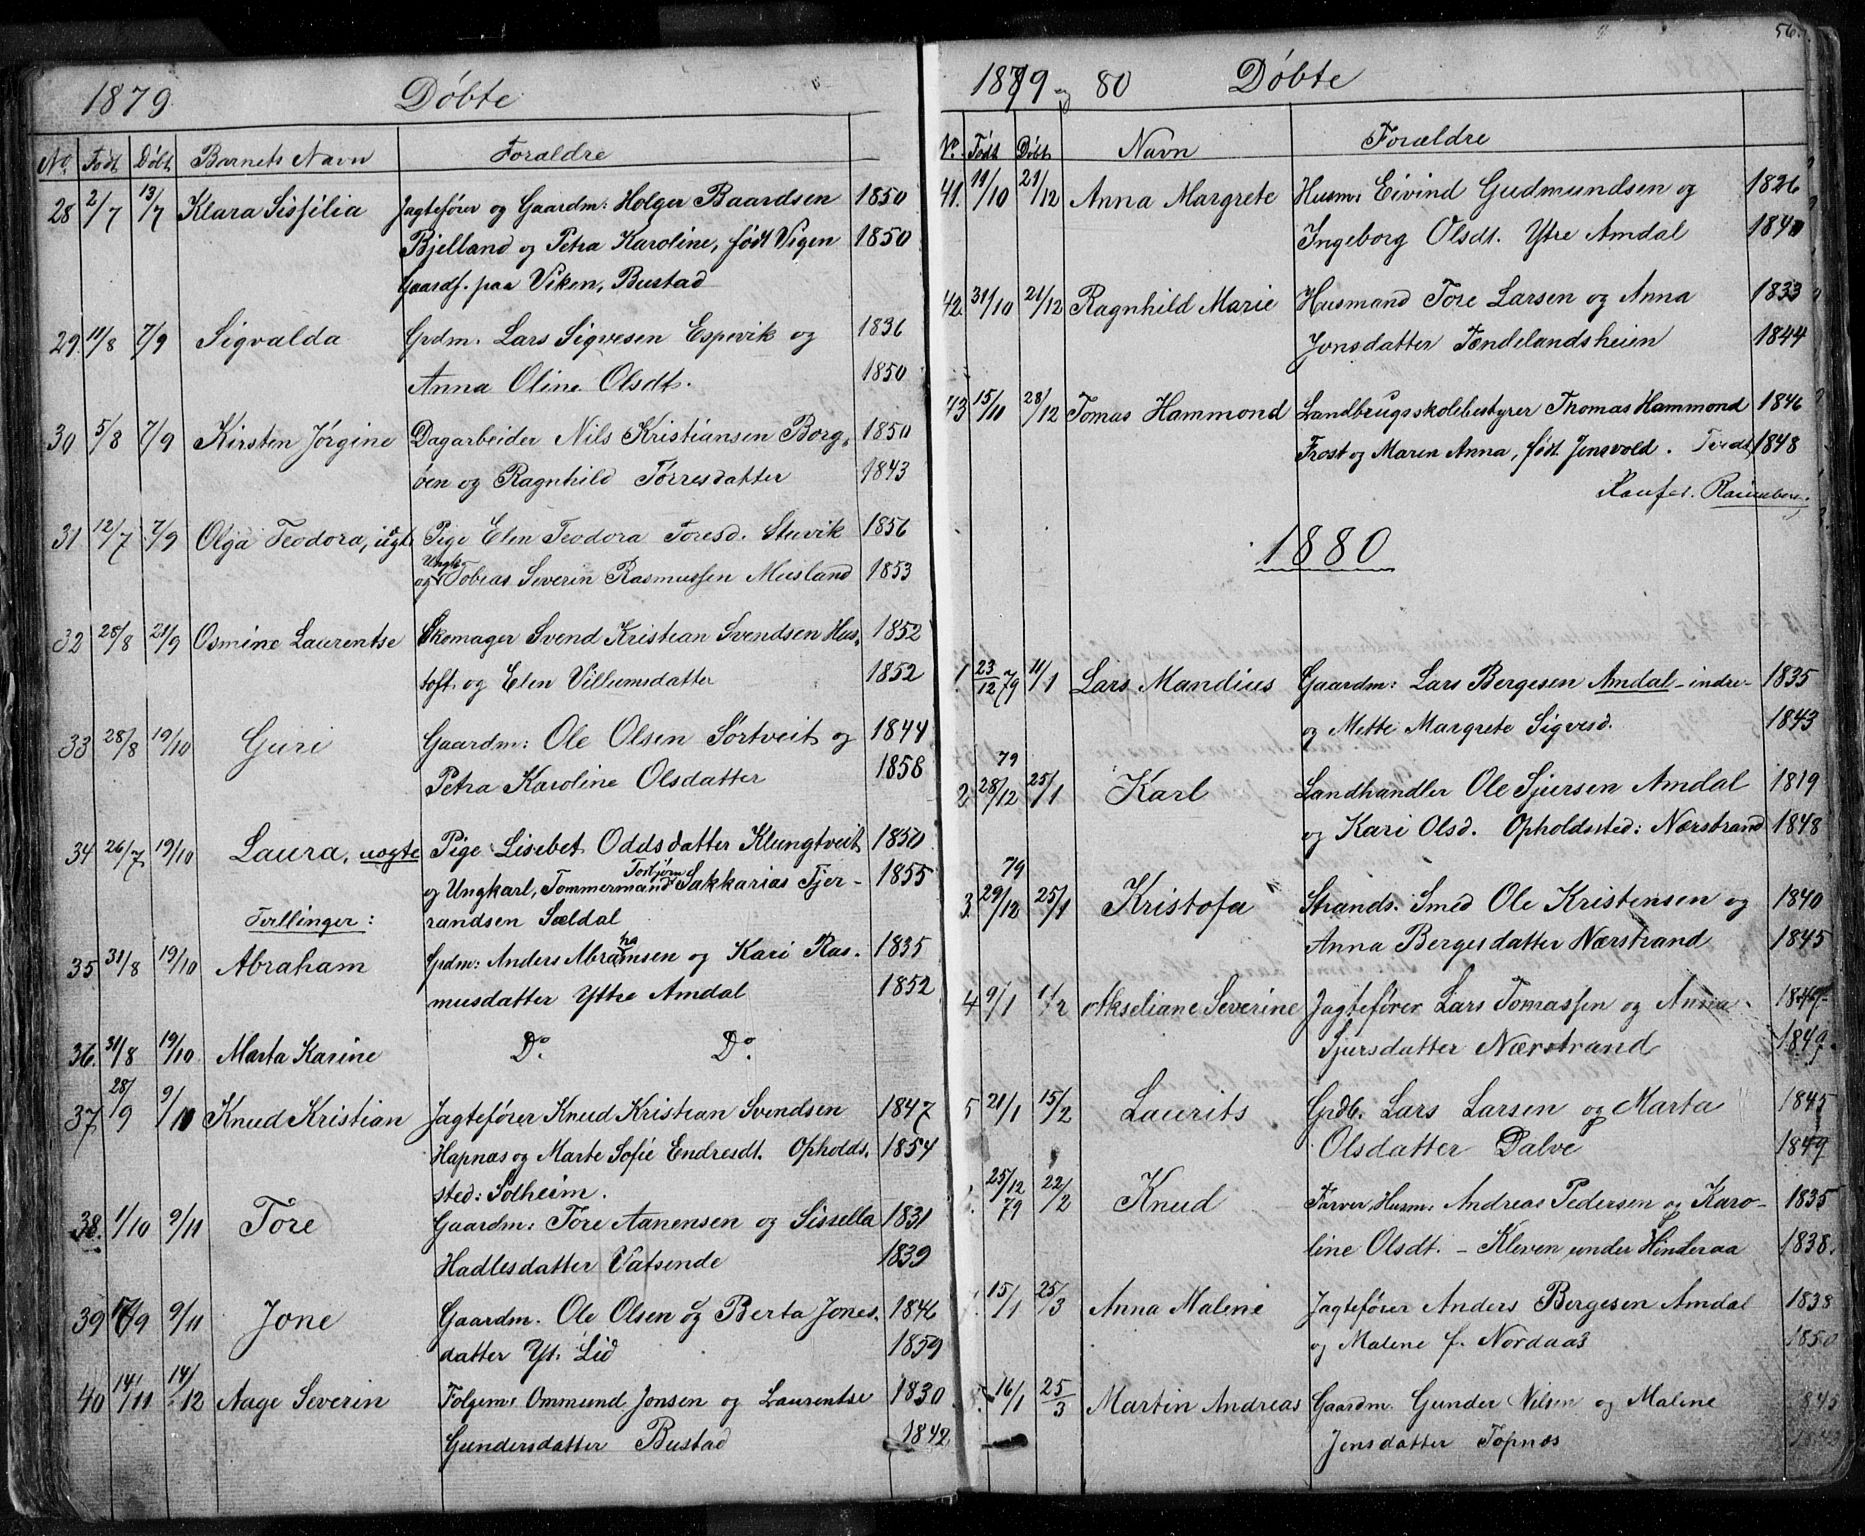 1879. Döbte
No. Födt Döbt Barnets Navn Forældre
28 2/7 13/7 Klara Sissilia Jagtefører og Gaardm: Holger Baardsen 1850
Bjelland og Petra Karoline, født Vigen 1850
Gaardf. paa Viken, Bustad
29. 11/8 7/9 Sigvalda Grdm. Lars Sigvesen Espevik og 1836
Anna Oline Olsdt. 1850
30 5/8 7/9 Kirsten Jörgine Dagarbeider Nils Kristiansen Borg- 1850
øen og Ragnhild Tørresdatter 1843
31 12/7 7/9 Olga Teodora, uegt. Pige Elen Teodora Toresd. Stuvik 1856
og Ungk. Tobias Severin Rasmussen Musland 1853
32 25/8 21/9 Osmine Laurentse Skomager Svend Kristian Svendsen Hus- 1852
toft og Elen Villumsdatter 1852
33 28/8 19/10 Guri Gaardm: Ole Olsen Sørtveit og 1844
Petra Karoline Olsdatter 1858
34 26/7 19/10 Laura, uegte Pige Lisebet Oddsdatter Klungtveit 1850
og Ungkarl, Tømmermand Torbjørn Sakkarias Tjer- 1855
Tvillinger: randsen Sældal
35 31/8 19/10 Abraham Grdm: Anders Abrahamsen og Kari Ras- 1835
musdatter Yttre Amdal 1852
36. 31/8 19/10 Marta Karine Do. Do.
37 28/9 9/11 Knud Kristian Jagtefører Knud Kristian Svendsen 1847
Hapnæs og Marte Sofie Endresdt. Opholds- 1854
sted: Solheim.
38. 1/10 9/11 Tore Gaardm: Tore Aanensen og Sissella 1831
Hadlesdatter Vatsende 1839
39 /9 9/11 Jone Gaardm. Ole Olsen og Berta Jones- 1846
datter Yt. Lid 1859
40 14/11 14/12 Aage Severin Folgem: Ommund Jonsen og Laurentse 1830
Gundersdatter Bustad 1842
56.
1879 og 80 Döbte
No. Födt Döbt Navn Forældre
41. 19/10 21/12 Anna Margrete Husm: Eivind Gudmundsen og 1826
Ingeborg Olsdt. Ytre Amdal 1840
42. 31/10 21/12 Ragnhild Marie Husmand Tore Larsen og Anna 1833
Jonsdatter Tendelandsheien 1844
43 15/11 28/12 Tomas Hammond Landbrugsskolebestyrer Thomas Hammond 1846
Frost og Maren Anna, født Jensvold. Tvedt 1848
1880
1. 23/12 79 11/1 Lars Mandius Gaardm: Lars Bergesen Amdal - indre - 1835
og Mette Margrete Sigvesd. 1843
2 28/12 79 25/1 Karl Landhandler Ole Sjursen Amdal 1819
og Kari Olsd. Opholdssted: Nærstrand 1848
3. 29/12 79 25/1 Kristofa Strands. Smed Ole Kristensen og 1840
Anna Bergesdatter Nærstrand 1845
4 9/1 1/2 Akseliane Severine Jagtefører Lars Tomassen og Anna
Sjursdatter Nærstrand 1849
5 21/1 15/2 Laurits Grdb. Lars Larsen og Marta 1845
Olsdatter Dalve 1849
25/12 79 22/2 Knud Farver, Husm: Andreas Pedersen og Karo- 1835
line Olsdt. - Kleven under Hinderaa 1838.
15/1 25/3 Anna Malene Jagtefører Anders Bergesen Amdal 1838
og Malene f. Nordaas 1850
16/1 25/3 Martin Andreas Gaardm. Gunder Nilsen og Malene 1845
Jensdatter Topnæs